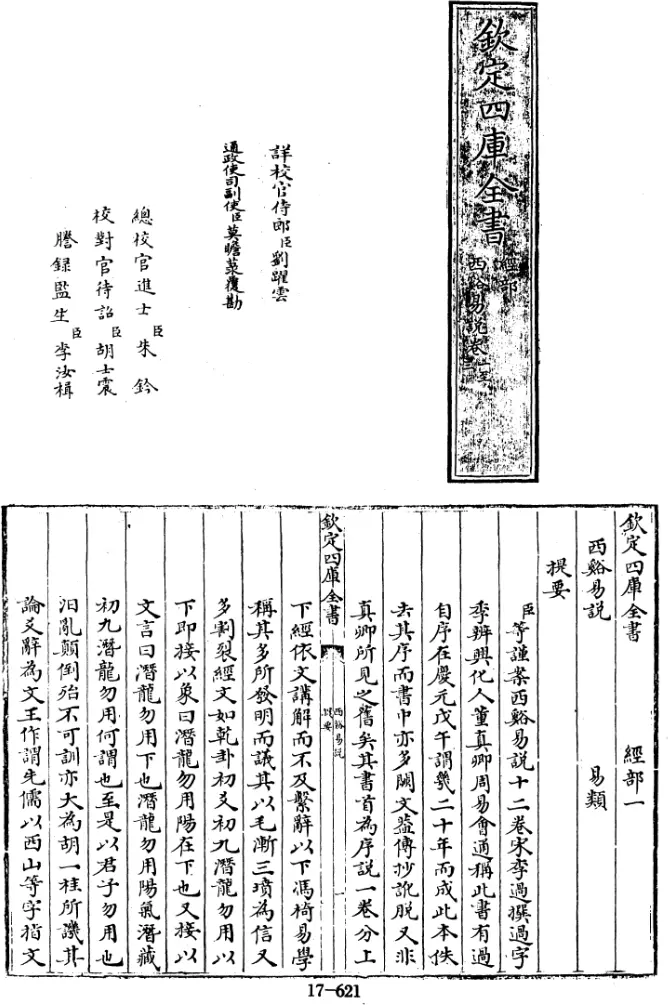 欽定四庫全書
經部
西谿易說卷一至三
詳校官侍郎臣劉躍雲
通政使司副使臣莫瞻菉覆勘
總校官進士臣朱鈐
校對官待詔臣胡士震
謄錄監生臣李汝楫
欽定四庫全書 經部一
西谿易說 易類
提要
臣等謹案西谿易說十二卷宋李過撰過字
季辨興化人董真卿周易會通稱此書有過
自序在慶元戊午謂幾二十年而成此本佚
去其序而書中亦多闕文葢傳抄訛脫又非
真卿所見之舊矣其書首為序說一卷分上
欽定四庫全書
西谿易說
提要
一
下經依文講解而不及繫辭以下馮椅易學
稱其多所發明而議其以毛漸三墳為信又
多割裂經文如乾卦初爻初九潛龍勿用以
下即接以象曰潛龍勿用陽在下也又接以
文言曰潛龍勿用下也潛龍勿用陽氣潛藏
初九潛龍勿用何謂也至是以君子勿用也
汩亂顛倒殆不可訓亦大為胡一桂所譏其
論爻辭為文王作謂先儒以西山等字指文
17-621